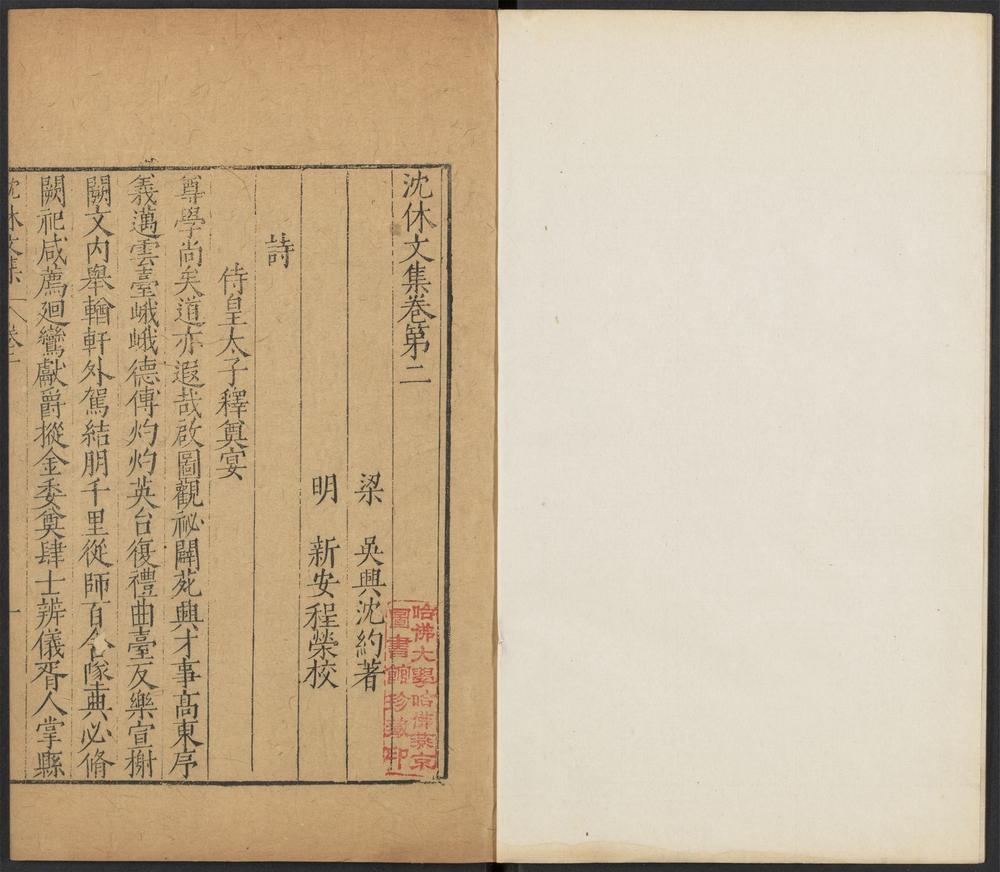 沈休文集卷第二
梁　吳興沈約著
明　新安程榮校
詩
侍皇太子釋奠宴
尊學尚矣道亦遐哉啟圖觀祕闢苑興才事高東序
義邁雲臺峨峨德傅灼灼英台復禮曲臺反樂宣榭
闕文內舉輶軒外駕結朋千里從師百舍隊典必脩
闕祀咸薦廻鸞獻爵摐金委奠肆士辨儀胥人掌縣
沈休文集　卷二　一
哈佛大學哈佛燕京
圖書館珍藏印